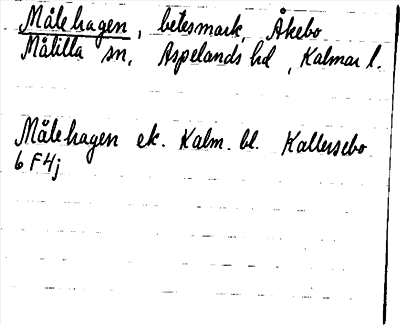 Målehagen, betesmark, Åkebo
Målilla sn, Aspelands hd, Kalmar l.
Målehagen ek. Kalm. bl. Kallersebo
6 F 4j